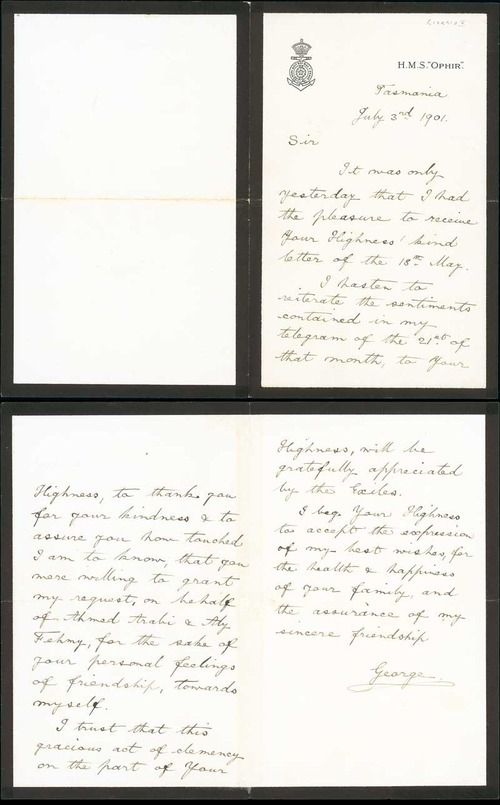 H.M.S. "OPHIR".
Tasmania
July 3rd 1901.
Sir
It was only
yesterday that I had
the pleasure to receive
Your Highness' kind
letter of the 18th May.
I hasten to
reiterate the sentiments
contained in my
telegram of the 21st of
that month, to Your
Highness, to thank you
for your kindness & to
assure you how touched
I am to know, that you
were willing to grant
my request, on behalf
of Ahmed Arabi & Aly
Fehmy, for the sake of
your personal feelings
of friendship, towards
myself.
I trust that this
gracious act of clemency
on the part of Your
Highness, will be
gratefully appreciated
by the Exiles.
I beg Your Highness
to accept the expression
of my best wishes, for
the health & happiness
of your family, and
the assurance of my
sincere friendship
George.